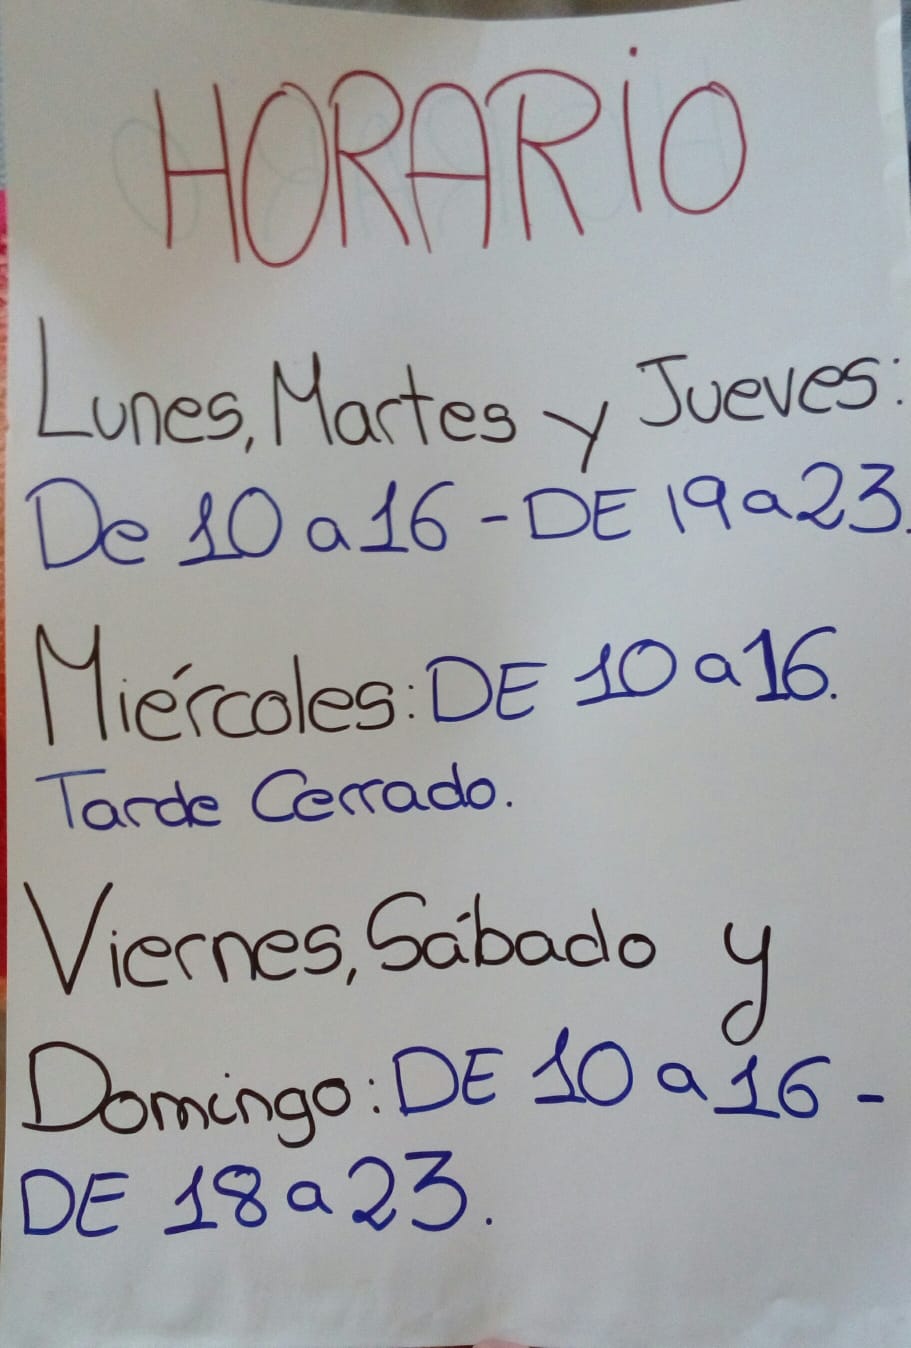 HORARiO
Lunes, Martes y Jueves:
De 10 a 16 - DE 19 a 23.
Miércoles: DE 10 a 16.
Tarde Cerrado.
Viernes, Sábado y
Domingo: DE 10 a 16 -
DE 18 a 23.